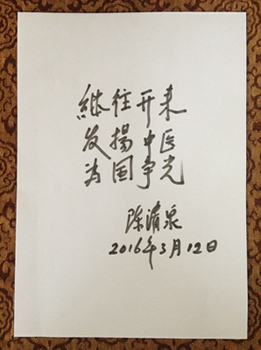 继往开来
发揚中医
为国争光
陈清泉
2016年3月12日